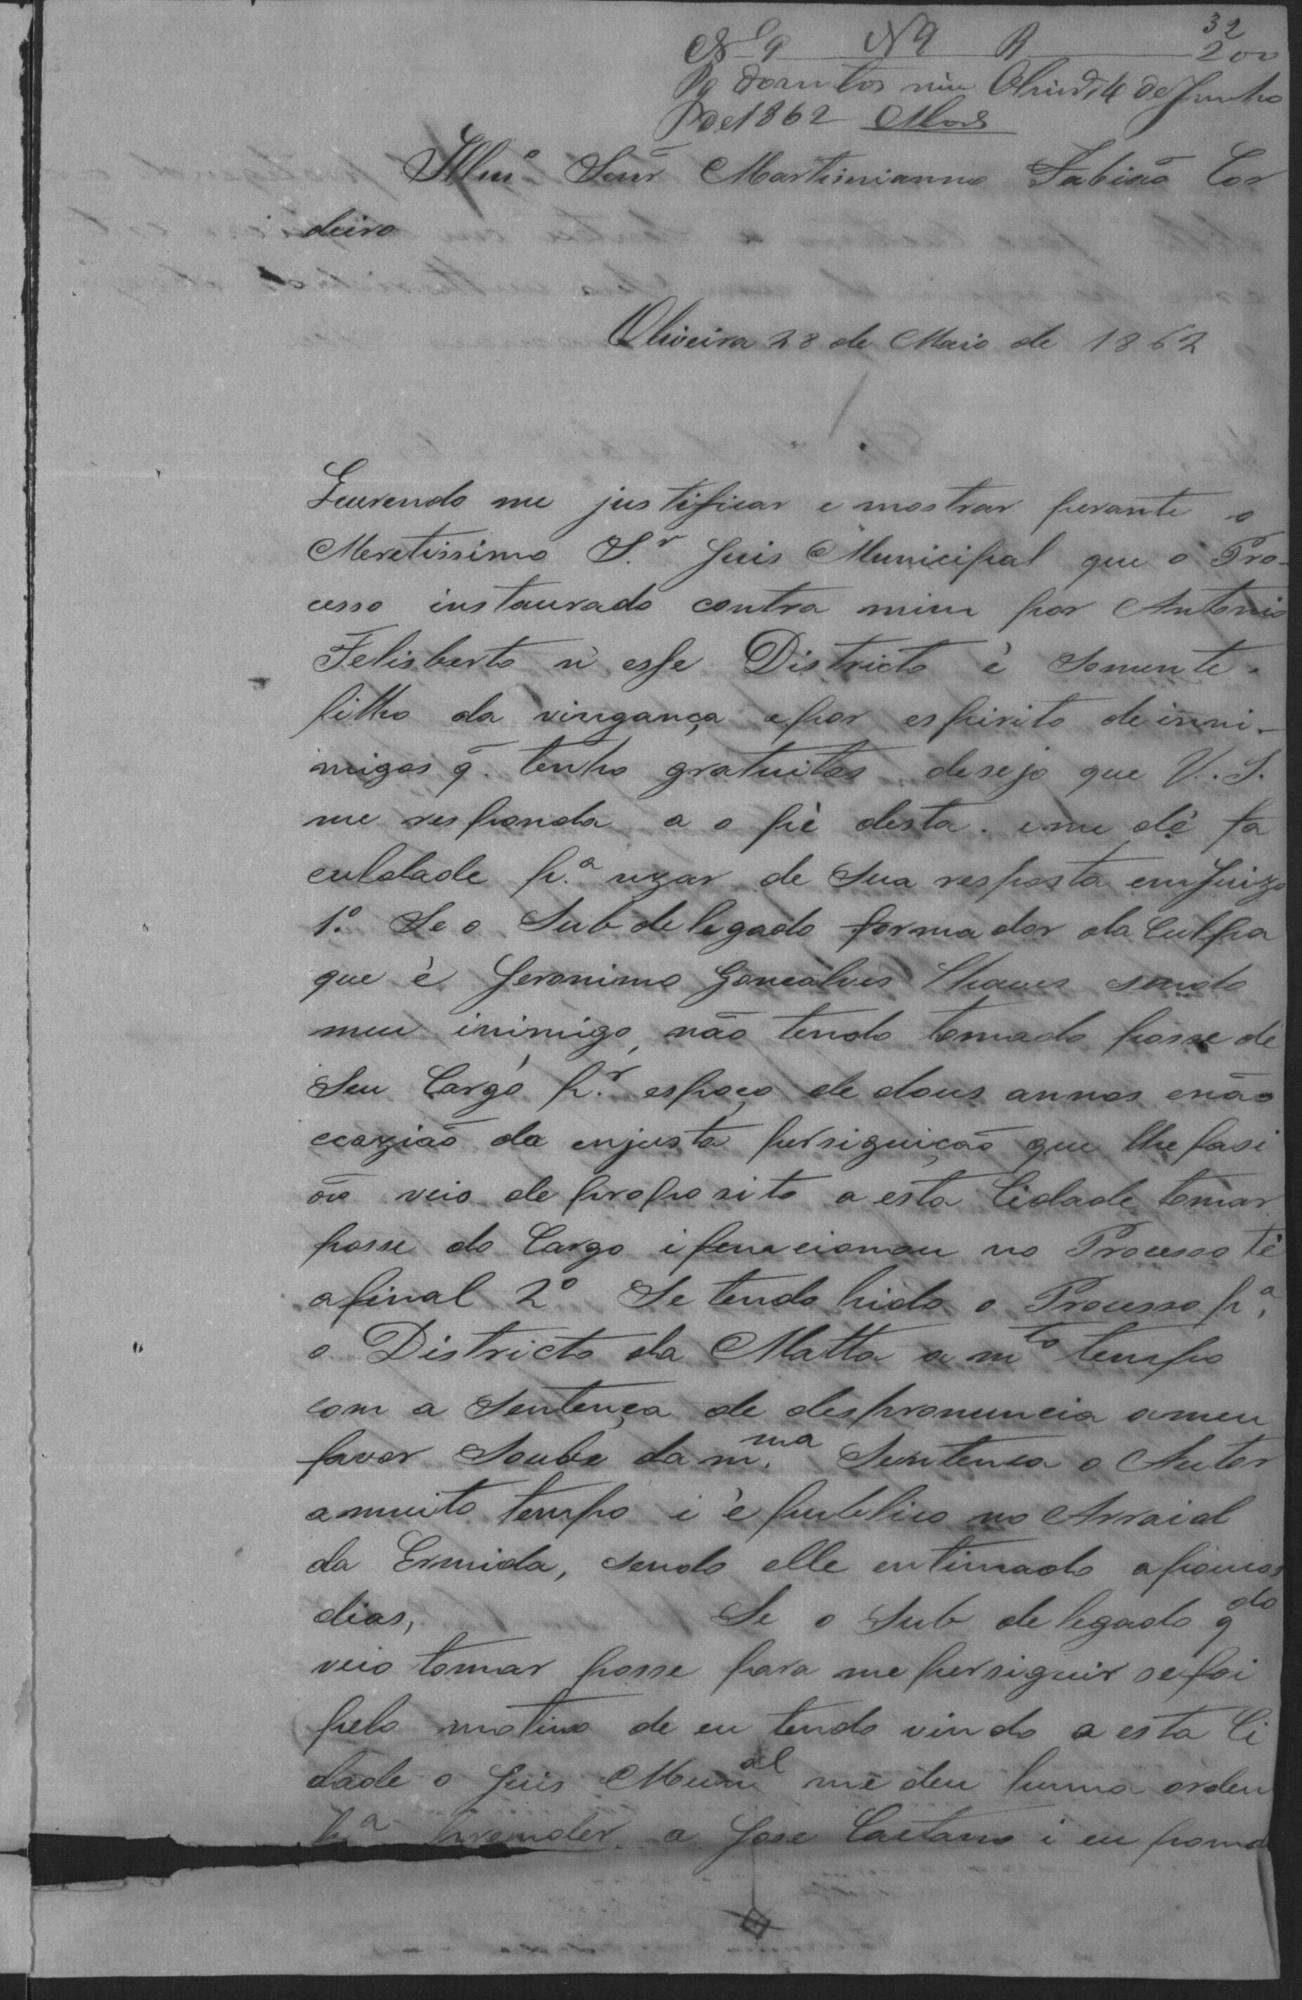 32
Nº 9 Nº 9 R 200
Pg duzentos reis Olivrª 4 de Junho
de 1862
Illmº Senr Martinianno Fabiaõ Cor
deiro
Oliveira 28 de Maio de 1862
Querendo me justificar e mostrar perante o
Meretissimo S.r Juis Municipal que o Pro-
cesso instaurado contra mim por Antonio
Felisberto n'esse Districto è somente
filho da vingança e por espirito de inni-
migos q̃. tenho gratuitos desejo que V. S.
me responda a o pè desta. e me dê fa
culdade p.ª uzar de sua resposta em Juizo
1º Se o Sub delegado formador da Culpa
que è Jeronimo Gonçalves Chaves sendo
meu inimigo, não tendo tomado posse de
seu Cargo p.r espaço de dous annos e não
ecazião da enjusta persiguição que lhe fasi
ão veio de proposito a esta Cidade tomar
posse do Cargo i funccionou no Processo tè
afinal 2º Se tendo hido o Processo p.ª
o Districto da Matta a m.to tempo
com a Sentença de despronuncia a meu
favor Soube da m.ma Sentença o Autor
a muito tempo i è publico no Arraial
da Ermida, sendo elle entimado a poucos
dias, Se o Sub delegado q.do
veio tomar posse para me persiguir se foi
pelo motivo de eu tendo vindo a esta Ci
dade o Juis Mun.al me deu huma ordem
p.ª prender a Jose Caetano i eu